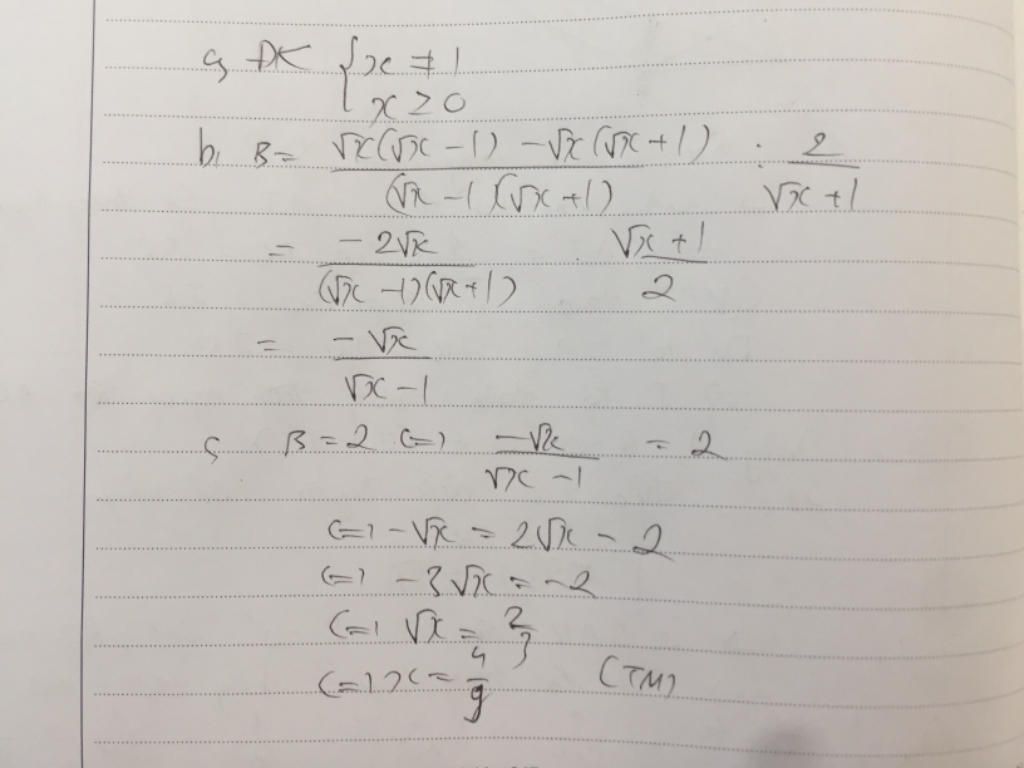 a, ĐK { x ≠ 1
x ≥ 0
b, B = (√x(√x - 1) - √x(√x + 1)) / ((√x - 1)(√x + 1)) : 2 / (√x + 1)
= (-2√x) / ((√x - 1)(√x + 1)) . (√x + 1) / 2
= (-√x) / (√x - 1)
c, B = 2 (=) (-√x) / (√x - 1) = 2
(=) -√x = 2√x - 2
(=) -3√x = -2
(=) √x = 2/3
(=) x = 4/9 (TM)